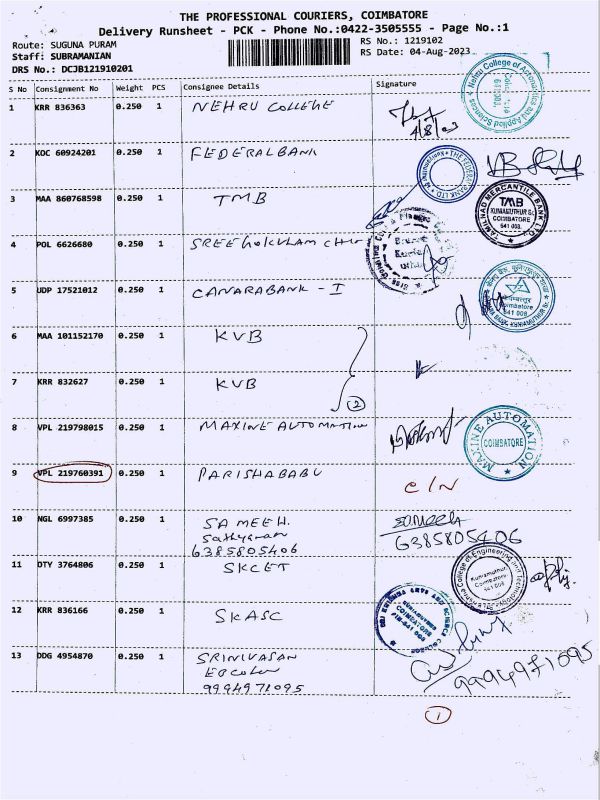 THE PROFESSIONAL COURIERS, COIMBATORE
Delivery Runsheet - PCK - Phone No.:0422-3505555 - Page No.:1
Route: SUGUNA PURAM RS No.: 1219102
Staff: SUBRAMANIAN RS Date: 04-Aug-2023
DRS No.: DCJB121910201
S No Consignment No Weight PCS Consignee Details Signature
1 KRR 836363 0.250 1 NEHRU COLLEGE
4/8/23
2 KOC 60924201 0.250 1 FEDERAL BANK
3 MAA 860768598 0.250 1 TMB
TAMILNAD MERCANTILE BANK LTD
TMB
KUNIAMUTHUR
COIMBATORE
641 008.
4 POL 6626680 0.250 1 SREE GOKULAM CHIT
5 UDP 17521012 0.250 1 CANARABANK - I
Coimbatore
641 008
6 MAA 101152170 0.250 1 KVB
7 KRR 832627 0.250 1 KVB
2
8 VPL 219798015 0.250 1 MAXINE AUTOMATION
MAXINE AUTOMATION
COIMBATORE
9 VPL 219760391 0.250 1 PARISHABABU C/N
10 NGL 6997385 0.250 1 SAMEEH.
Sathyaran
6385805406 6385805406
11 OTY 3764806 0.250 1 SKCET
Kuniamuthur
Coimbatore
12 KRR 836166 0.250 1 SKASC
COIMBATORE
PIN-641 008
13 DDG 4954870 0.250 1 SRINIVASAN
9994971095 9994971095
1